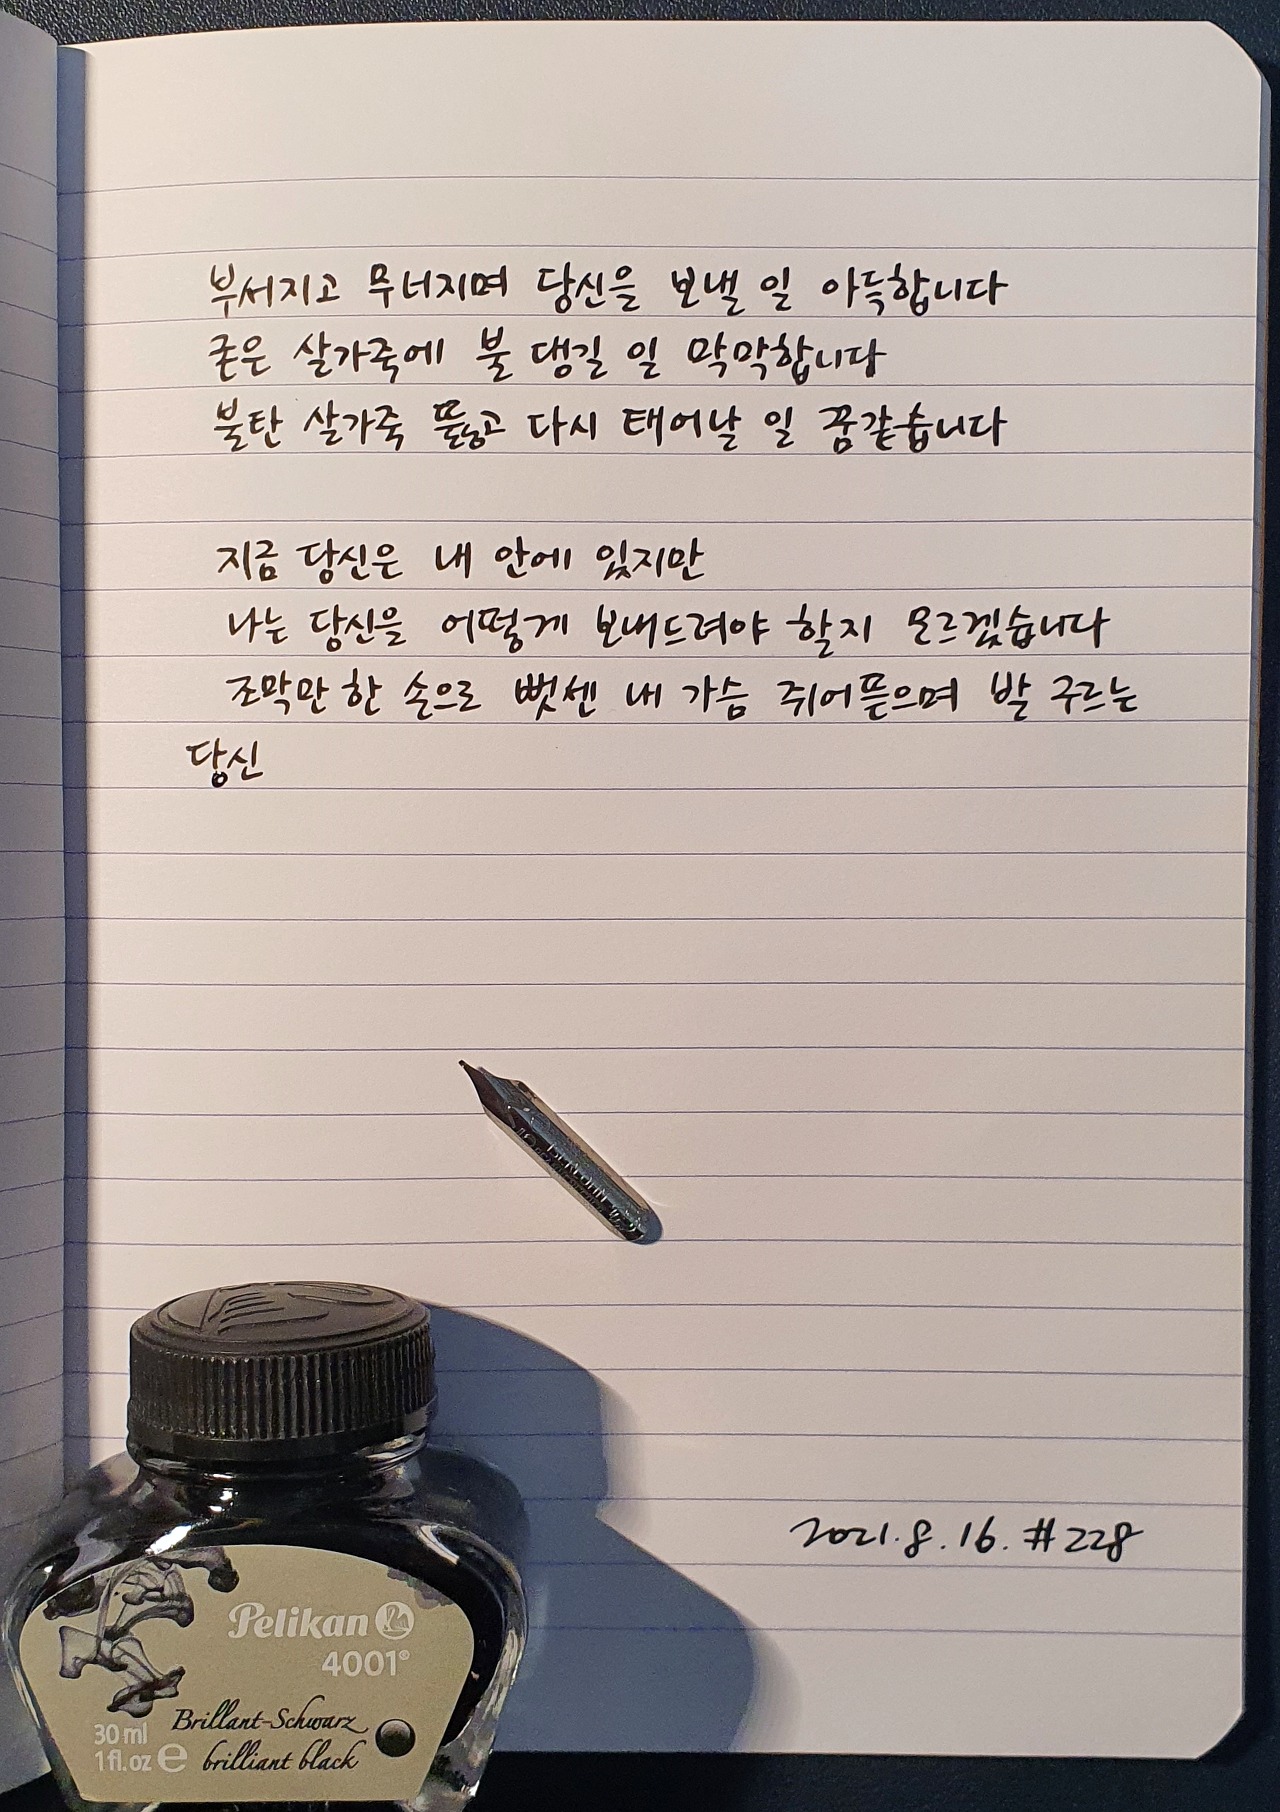 부서지고 무너지며 당신을 보낼 일 아득합니다
굳은 살가죽에 불 댕길 일 막막합니다
불탄 살가죽 뚫고 다시 태어날 일 꿈같습니다
지금 당신은 내 안에 있지만
나는 당신을 어떻게 보내드려야 할지 모르겠습니다
조막만 한 손으로 뻣센 내 가슴 쥐어뜯으며 발 구르는
당신
2021.8.16. #228
Pelikan
4001®
Brillant-Schwarz
brilliant black
30 ml
1 fl.oz e